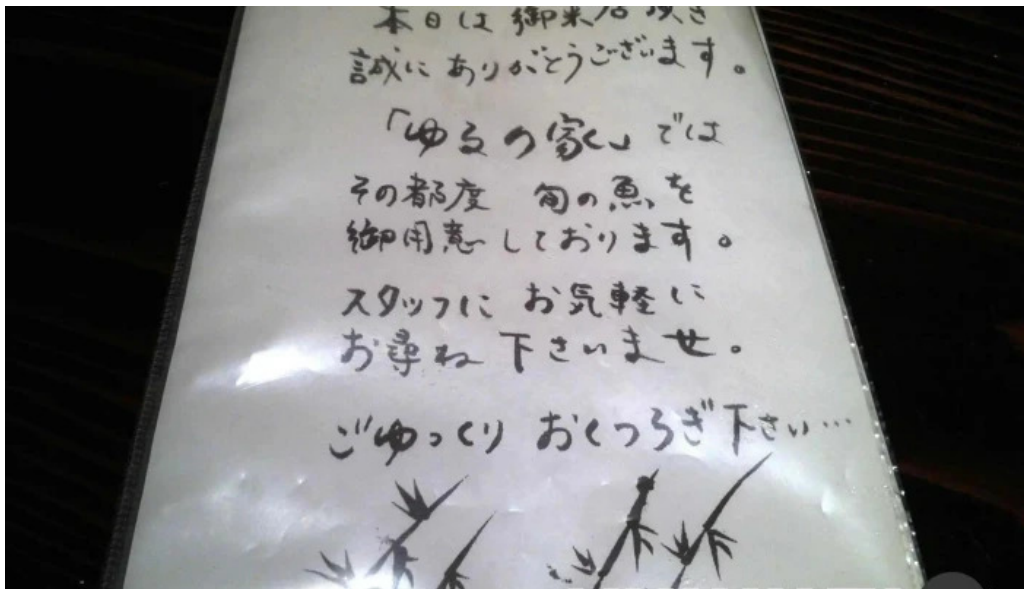 本日は御来店頂き
誠にありがとうございます。
「ゆるの家」では
その都度 旬の魚を
御用意しております。
スタッフに お気軽に
お尋ね 下さいませ。
ごゆっくり おくつろぎ下さい…